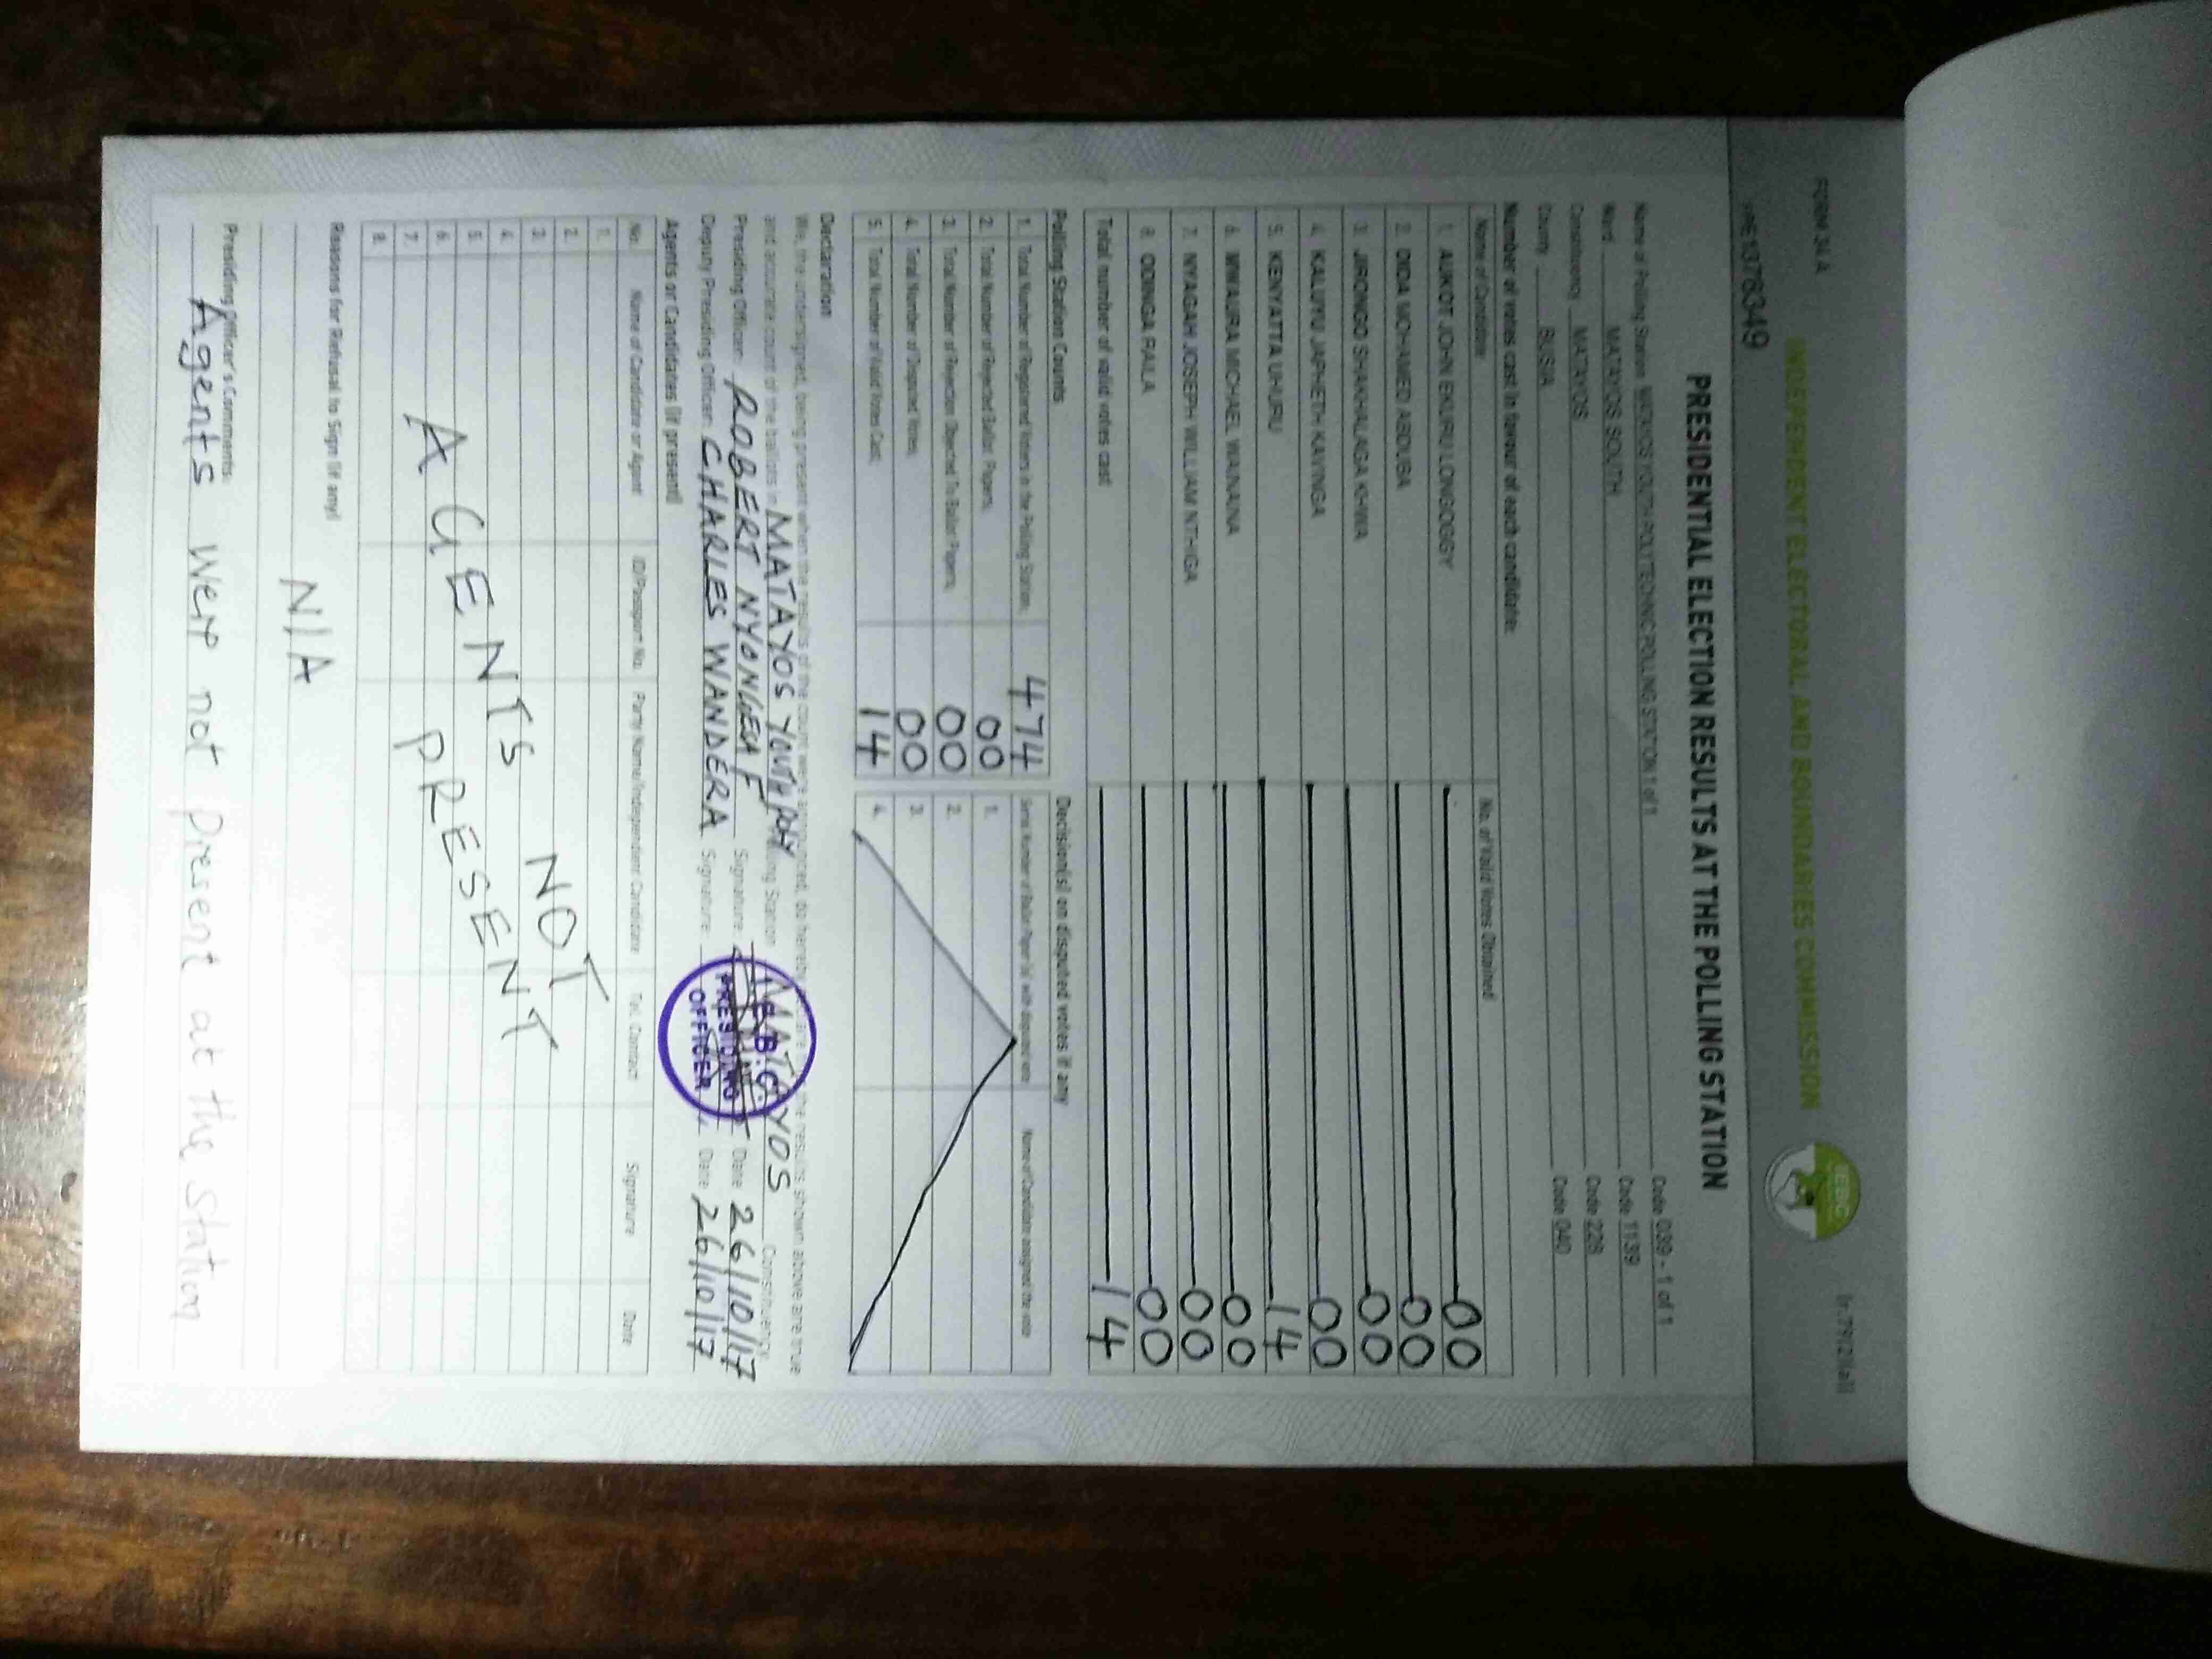 FORM 34 A
INDEPENDENT ELECTORAL AND BOUNDARIES COMMISSION
IEBC
PRESIDENTIAL ELECTION RESULTS AT THE POLLING STATION
Name of Polling Station MATAYOS YOUTH POLYTECHNIC POLLING STATION 1 of 1 Code 039 - 1 of 1
Ward MATAYOS SOUTH Code 1139
Constituency MATAYOS Code 228
County BUSIA Code 040
Number of votes cast in favour of each candidate:
Name of Candidate No. of Valid Votes Obtained
1. AUKOT JOHN EKURU LONGOGGY 00
2. DIDA MOHAMED ABDUBA 00
3. JIRONGO SHAKHALAGA KHWA 00
4. KALUYU JAPHETH KAVINGA 00
5. KENYATTA UHURU 14
6. MWAURA MICHAEL WAINAINA 00
7. NYAGAH JOSEPH WILLIAM NTHIGA 00
8. ODINGA RAILA 00
Total number of valid votes cast 14
Polling Station Counts Decision(s) on disputed votes if any
1. Total Number of Registered Voters in the Polling Station; 474 Serial Number of Ballot Paper (s) with disputed vote Name of Candidate assigned the vote
2. Total Number of Rejected Ballot Papers; 00 1.
3. Total Number of Rejection Objected To Ballot Papers; 00 2.
4. Total Number of Disputed Votes; 00 3.
5. Total Number of Valid Votes Cast; 14 4.
Declaration
We, the undersigned, being present when the results of the count were announced, do hereby declare the results shown above are true
and accurate count of the ballots in MATAYOS YOUTH POLY Polling Station MATAYOS Constituency.
Presiding Officer: ROBERT NYONGESA F Signature: Date 26/10/17
Deputy Presiding Officer: CHARLES WANDERA Signature: Date 26/10/17
I.E.B.C.
PRESIDING
OFFICER
Agents or Candidates (if present)
No. Name of Candidate or Agent ID/Passport No. Party Name/Independent Candidate Tel. Contact Signature Date
1.
2.
3.
4.
5.
6.
7.
8.
AGENTS NOT
PRESENT
Reasons for Refusal to Sign (if any)
N/A
Presiding Officer's Comments:
Agents were not present at the station